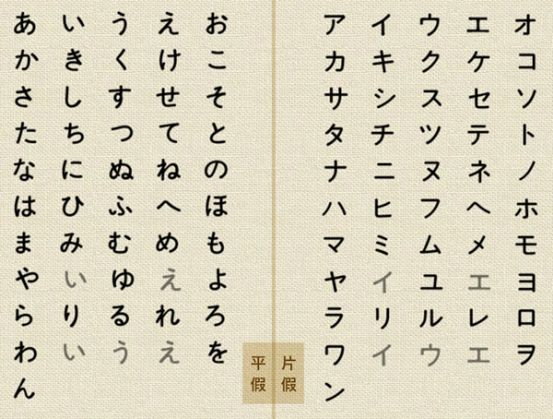 あ い う え お
か き く け こ
さ し す せ そ
た ち つ て と
な に ぬ ね の
は ひ ふ へ ほ
ま み む め も
や い ゆ え よ
ら り る れ ろ
わ い う え を
ん
ア イ ウ エ オ
カ キ ク ケ コ
サ シ ス セ ソ
タ チ ツ テ ト
ナ ニ ヌ ネ ノ
ハ ヒ フ ヘ ホ
マ ミ ム メ モ
ヤ イ ユ エ ヨ
ラ リ ル レ ロ
ワ イ ウ エ ヲ
ン
平假
片假